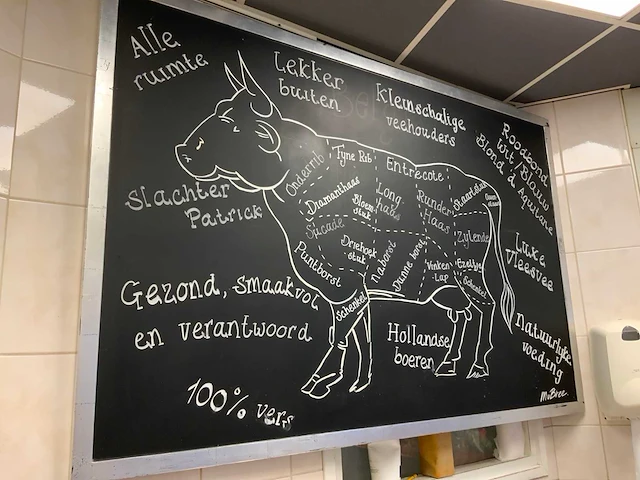 Alle
ruimte
Lekker
buiten
Kleinschalige
veehouders
Roodbond
Wit Blauw
Blond d'Aquitane
Slachter
Patrick
Onderrib
Tyne Rib
Entrecote
Diamanthaas
Bloem
stuk
Long
haas
Runder
Haas
Staartstuk
Sucade
Driehoek
stuk
Zylende
Puntborst
Naborst
Dunne borst
Vinken
Lap
Ezeltje
Schenkel
Schenkel
Luxe
Vleesvee
Gezond, smaakvol
en verantwoord
Hollandse
boeren
Natuurlyke
voeding
100% vers